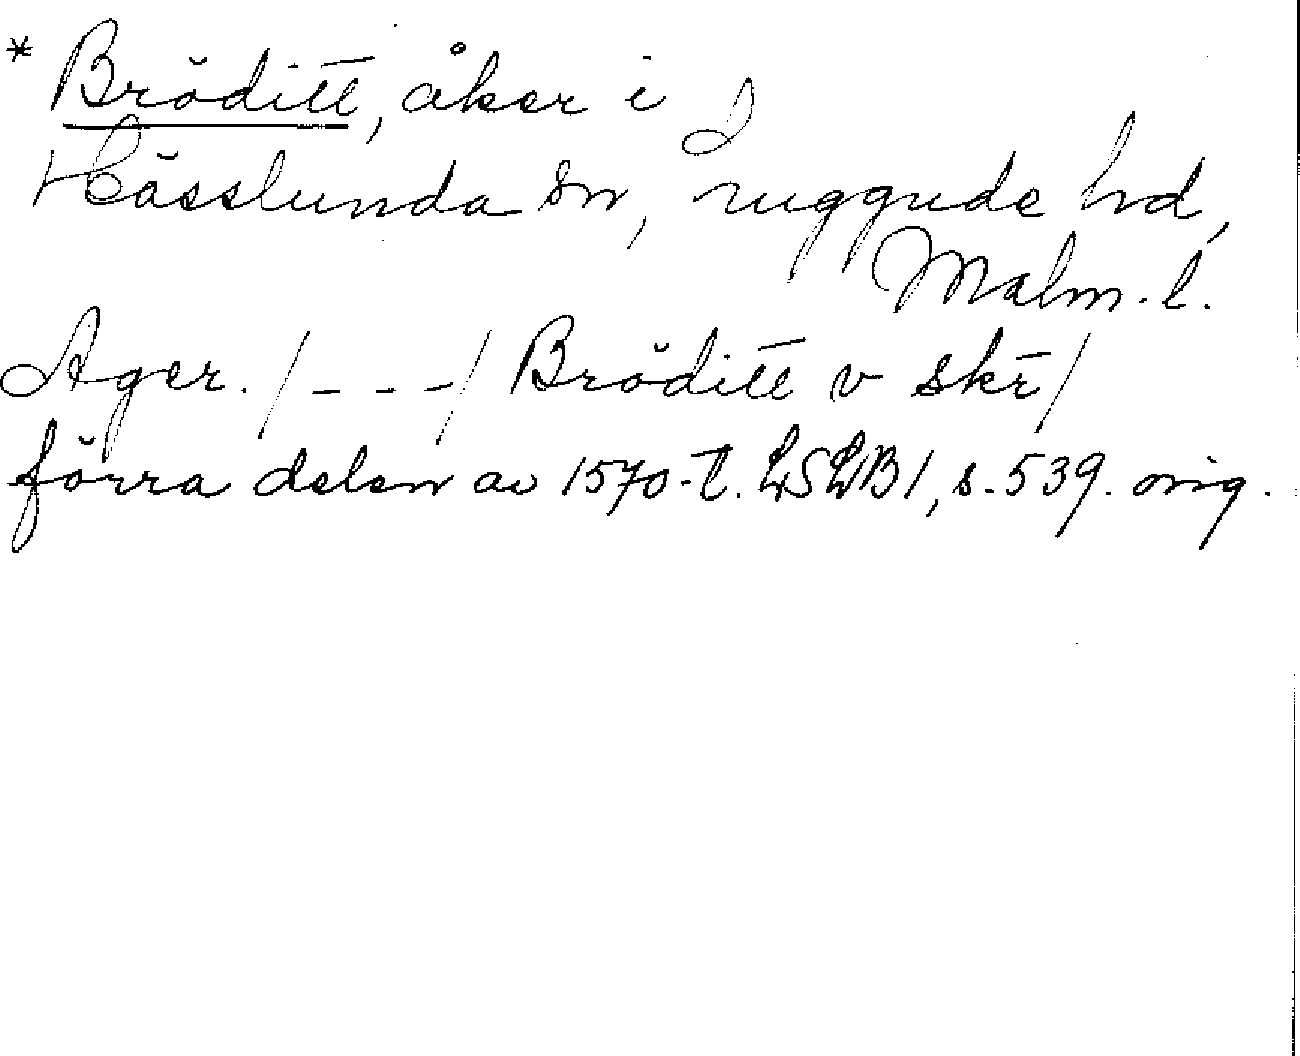 * Bröditt, åker i
Hässlunda sn, Luggude hd,
Malm. l.
Ager. /- - -/ Bröditt v skr/
förra delen av 1570-t. LSLB1, s. 539. orig.